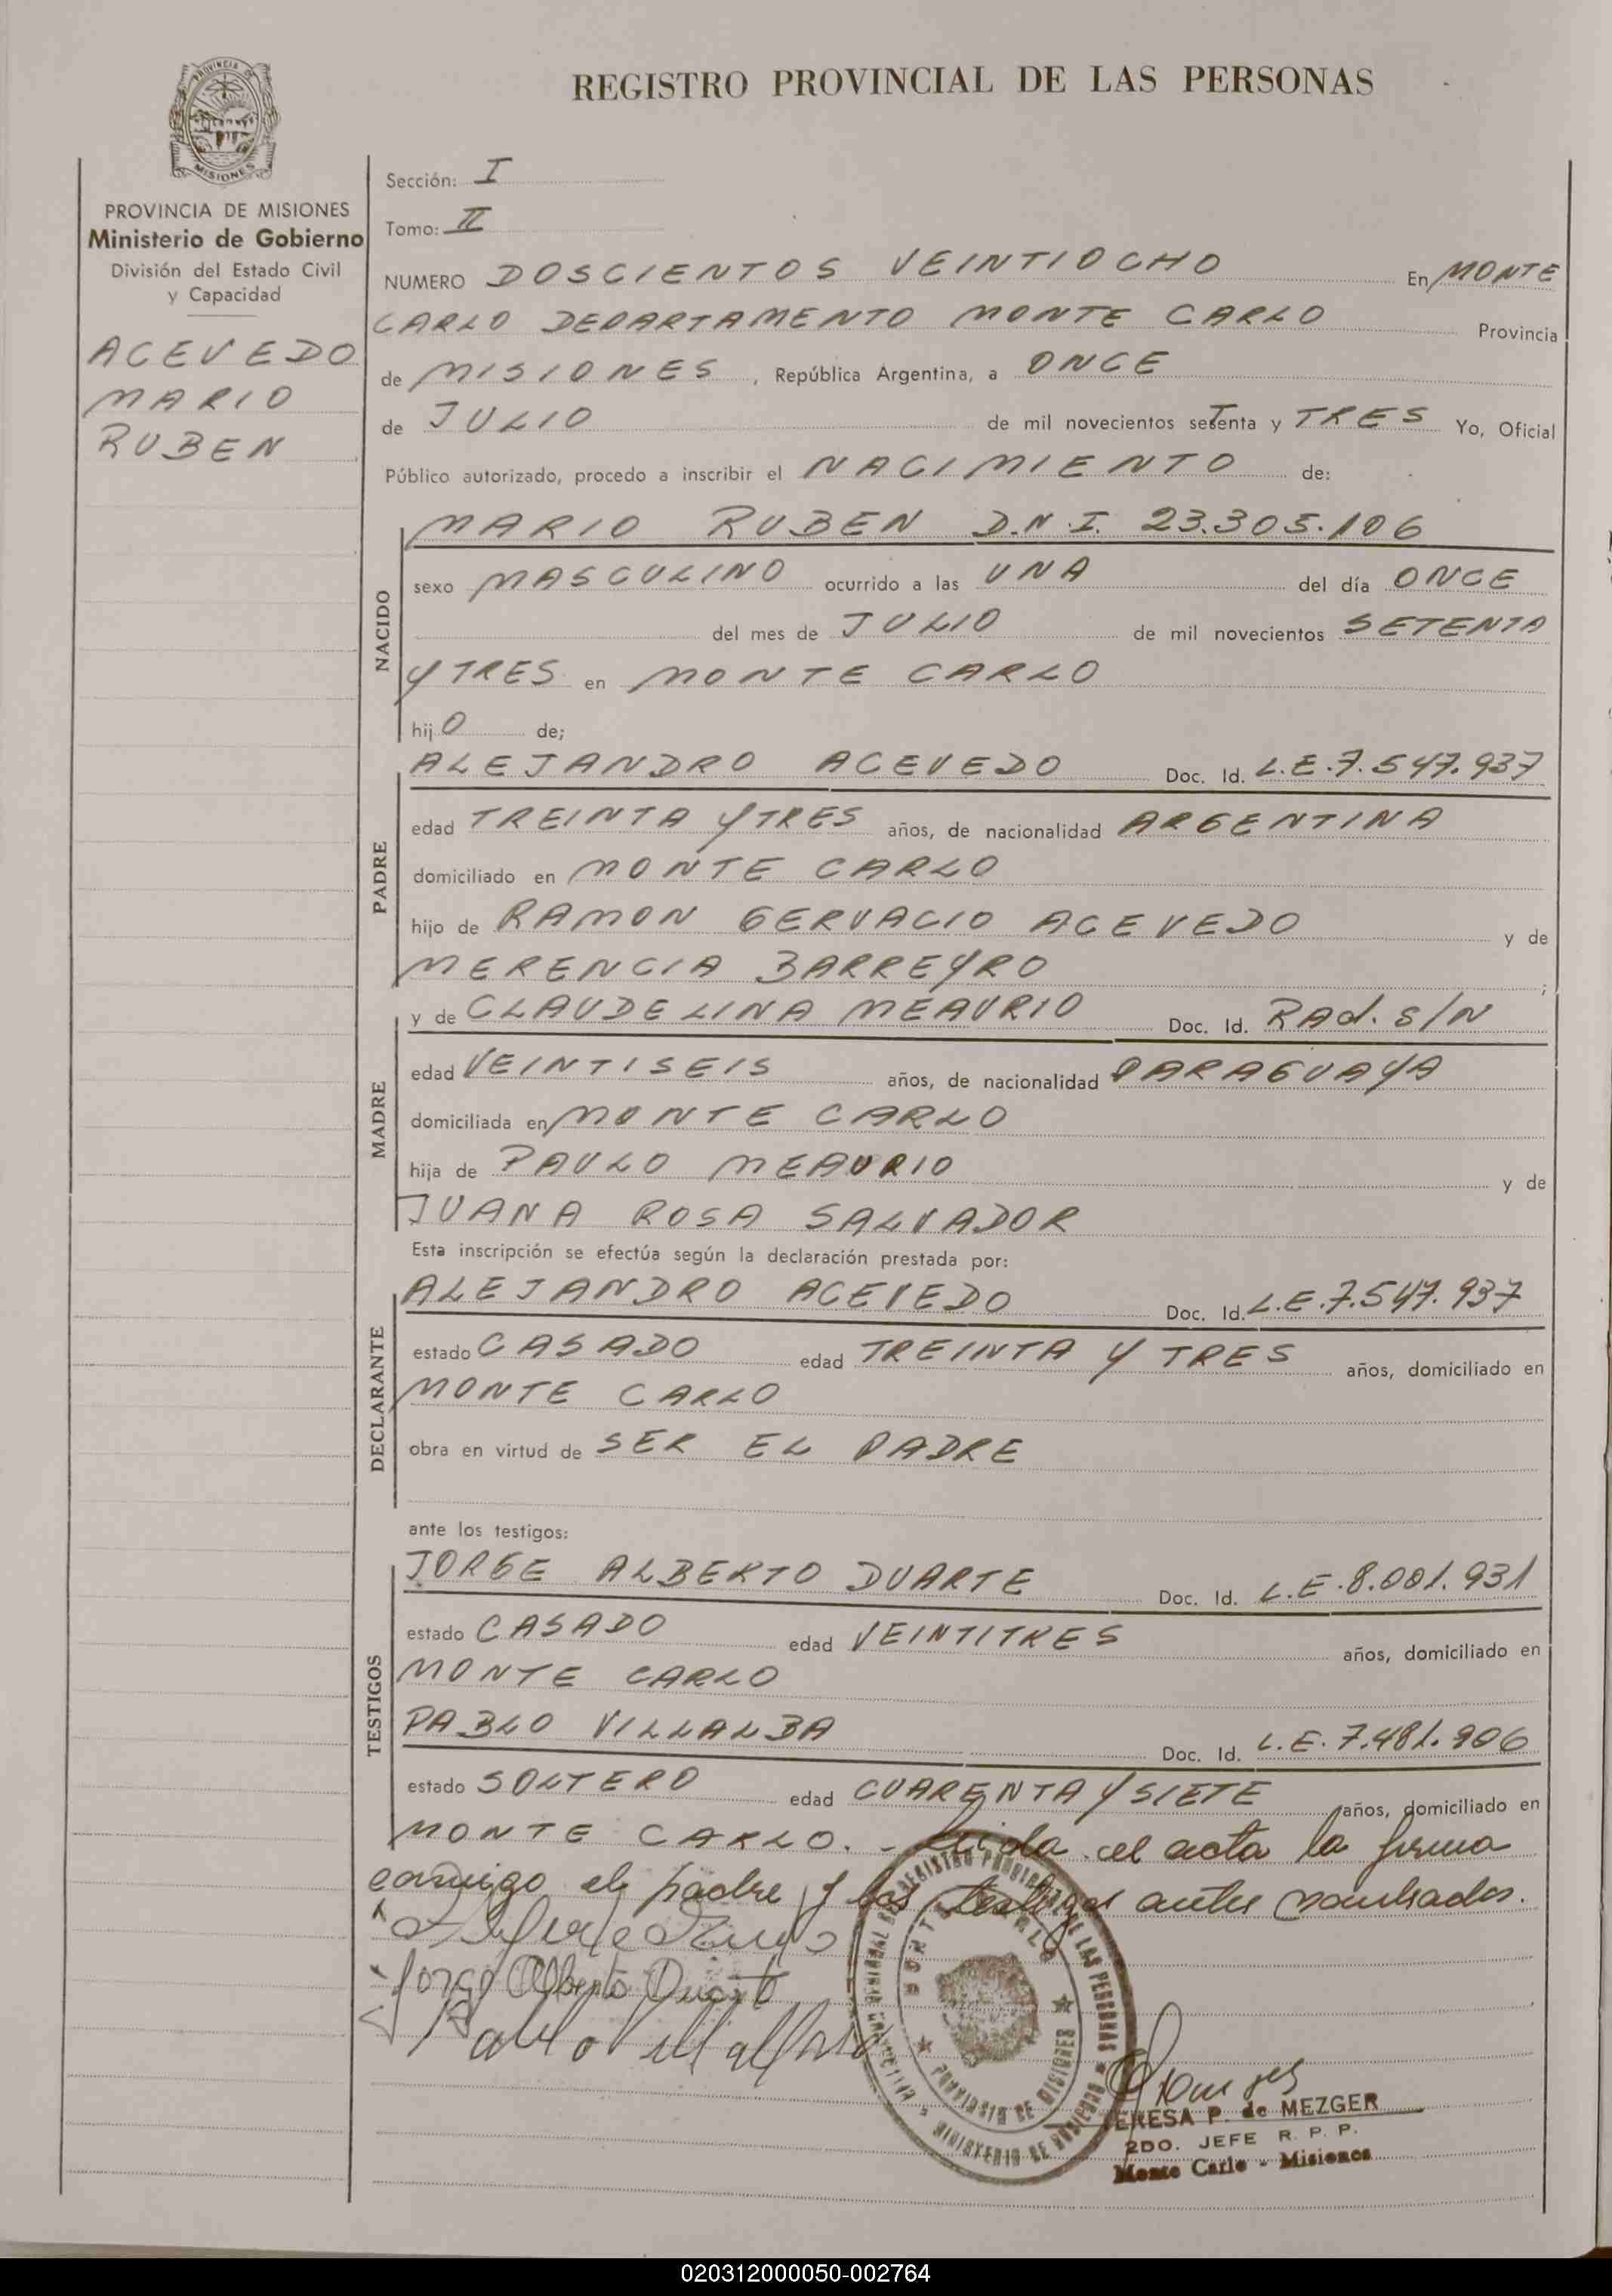 REGISTRO PROVINCIAL DE LAS PERSONAS
PROVINCIA DE MISIONES
PROVINCIA DE MISIONES
Ministerio de Gobierno
División del Estado Civil
y Capacidad
ACEVEDO
MARIO
RUBEN
Sección: I
Tomo: II
NUMERO DOSCIENTOS VEINTIOCHO En MONTE
CARLO DEPARTAMENTO MONTE CARLO Provincia
de MISIONES, República Argentina, a ONCE
de JULIO de mil novecientos setenta y TRES Yo, Oficial
Público autorizado, procedo a inscribir el NACIMIENTO de:
NACIDO
MARIO RUBEN D.N.I. 23.305.106
sexo MASCULINO ocurrido a las UNA del día ONCE
del mes de JULIO de mil novecientos SETENTA
Y TRES en MONTE CARLO
hijO de;
PADRE
ALEJANDRO ACEVEDO Doc. Id. L.E.7.547.937
edad TREINTA Y TRES años, de nacionalidad ARGENTINA
domiciliado en MONTE CARLO
hijo de RAMON GERVACIO ACEVEDO y de
MERENCIA BARREYRO ;
MADRE
y de CLAUDELINA MEAURIO Doc. Id. RAd. S/N
edad VEINTISEIS años, de nacionalidad PARAGUAYA
domiciliada en MONTE CARLO
hija de PAULO MEAURIO y de
JUANA ROSA SALVADOR
Esta inscripción se efectúa según la declaración prestada por:
DECLARANTE
ALEJANDRO ACEVEDO Doc. Id. L.E.7.547.937
estado CASADO edad TREINTA Y TRES años, domiciliado en
MONTE CARLO
obra en virtud de SER EL PADRE
ante los testigos:
TESTIGOS
JORGE ALBERTO DUARTE Doc. Id. L.E.8.001.931
estado CASADO edad VEINTITRES años, domiciliado en
MONTE CARLO
PABLO VILLALBA Doc. Id. L.E.7.481.906
estado SOLTERO edad CUARENTA Y SIETE años, domiciliado en
MONTE CARLO. - Leida el acta la firma
conmigo el padre y los testigos antes nombrados.
Jorge Alberto Duarte
Pablo Villalba
REGISTRO PROVINCIAL DE LAS PERSONAS
MONTE CARLO
PROVINCIA DE MISIONES
MINISTERIO DE GOBIERNO
TERESA P. de MEZGER
2DO. JEFE R. P. P.
Monte Carlo - Misiones
020312000050-002764